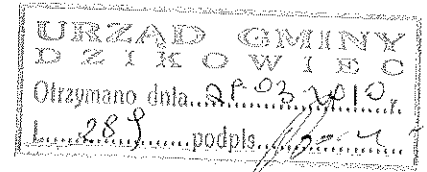 URZĄD GMINY
DZIKOWIEC
Otrzymano dnia 03 2010 r.
L. 289 podpis